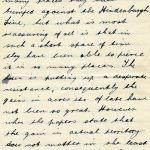 many places they can
bumped against the Hindenburgh
line, but what is most
reassuring of all is that in
such a short space of time
they have been able to pierce
it in so many places. The
is putting up a desperate
resistance, consequently the
gains in acres etc of late have
not been so great. However
when the papers state that
the gain in actual territory
does not matter in the least